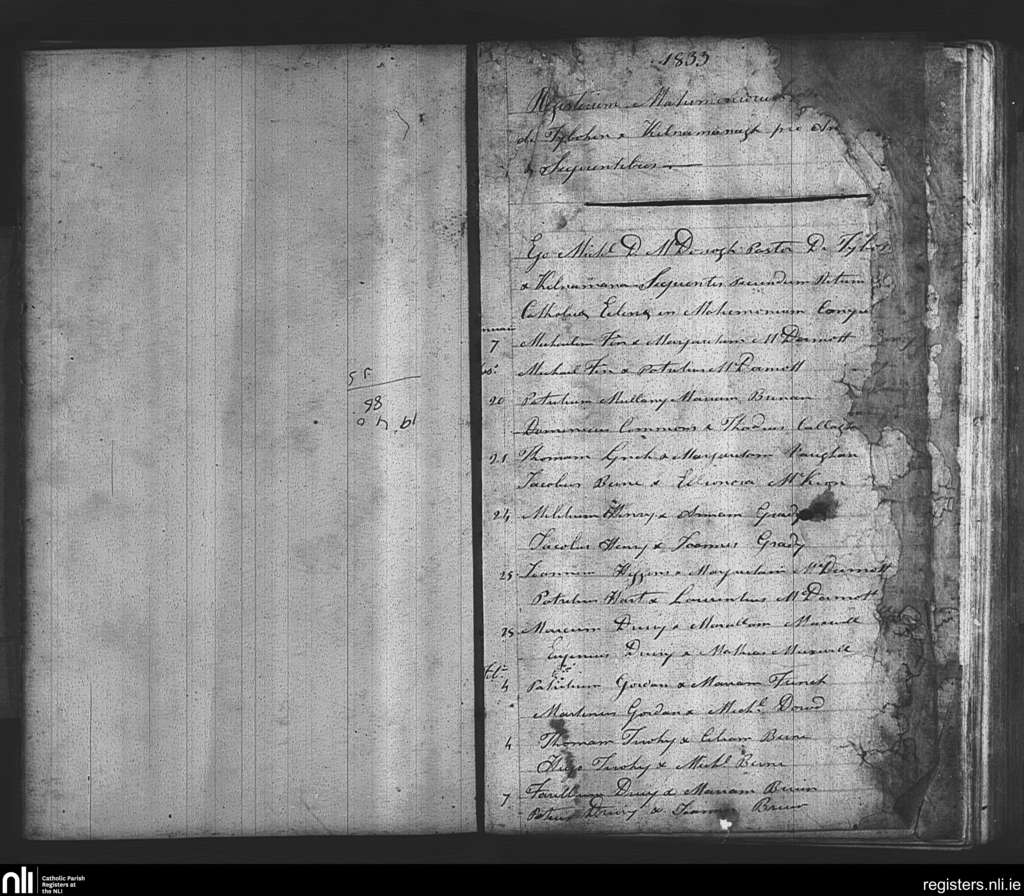 5 L
98
19.4.0
1833
Registerium Matrimoniorum
de Tybohin & Kilnamanagh pro
Sequentibus
Ego Michl D McDonogh Pastor De
& Kilnamana Sequentes secundum Ritum
Catholica in Matrimonium
7 Fin & Margaretam McDermott
Michael Fin & Patritius McDermott
20 Patritium Mullany Mariam Brenan
Dominicus Commons & Thadeus
21 Thomam & Margaretam Vaughan
Jacobus Beirne & Elionora McKeon
24 Henry & Annam Grady
Jacobus Henry & Joannes Grady
25 Joannem Higgins & Margaretam McDermott
Patritius Hart & Laurentius McDermott
25 Marcum Drury & Maxwell
Eugenius Drury & Mathias Maxwell
Feb
4 Patritium Gordan & Mariam French
Martinus Gordan & Michl Dowd
4 Thomam Tuohy & Beirne
Hugo Tuohy & Michl Beirne
7 Drury & Mariam
Patrick Drury &
nli Catholic Parish
Registers at
the NLI
registers.nli.ie